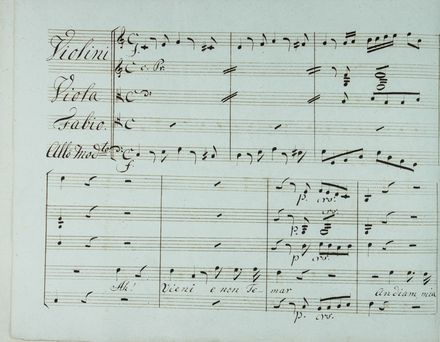 Violini
f.
c. Pr.
Viola
Fabio.
Allo Modto
f.
p. crs.
crs.
p.
p crs.
Ah! Vieni e non Te mar Andiam mia
p. crs.